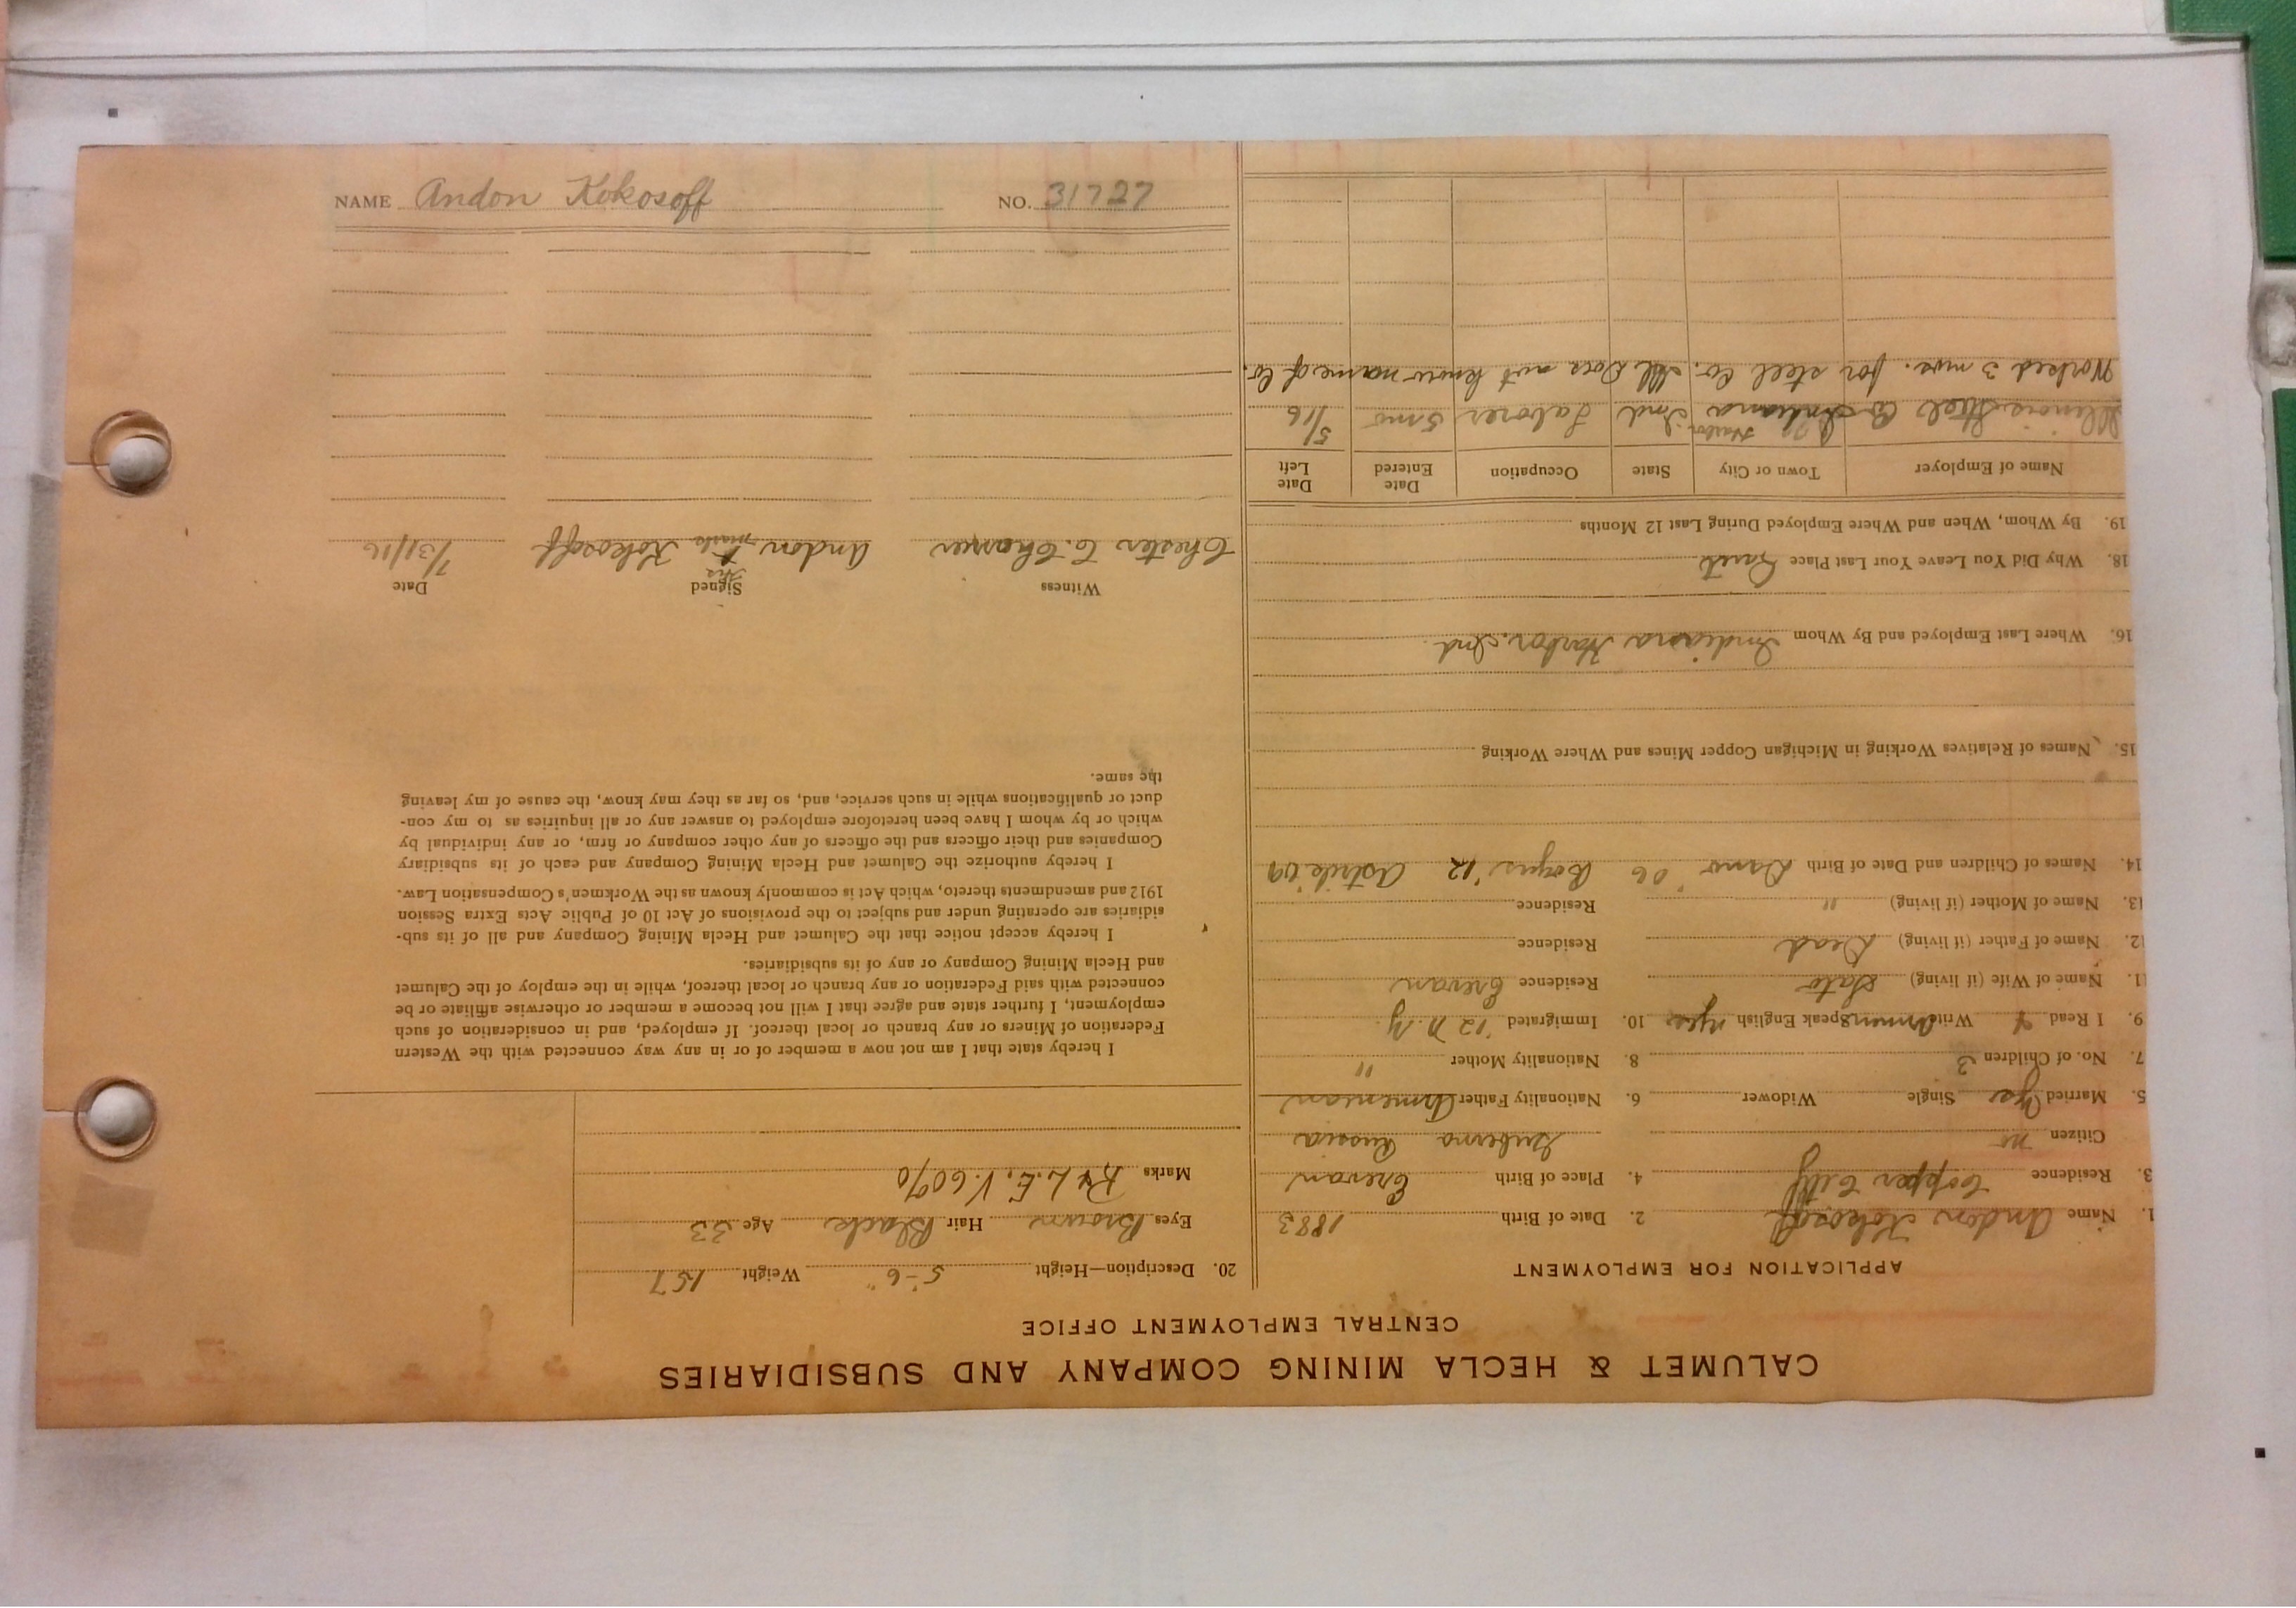 CALUMET & HECLA MINING COMPANY AND SUBSIDIARIES
CENTRAL EMPLOYMENT OFFICE
APPLICATION FOR EMPLOYMENT
1. Name Andon Kokosoff 2. Date of Birth 1883
3. Residence Copper City 4. Place of Birth Erevan
Citizen no Guberna Russia
5. Married Yes Single Widower 6. Nationality Father Armenian
7. No. of Children 3 8. Nationality Mother "
9. I Read & Write Armen Speak English yes 10. Immigrated '12 N.Y.
11. Name of Wife (if living) Sato Residence Erevan
12. Name of Father (if living) Dead Residence
13. Name of Mother (if living) " Residence
14. Names of Children and Date of Birth '06 '12 Astrik '09
15. Names of Relatives Working in Michigan Copper Mines and Where Working
16. Where Last Employed and By Whom Indiana Harbor, Ind.
18. Why Did You Leave Your Last Place Quit
19. By Whom, When and Where Employed During Last 12 Months
Name of Employer Town or City State Occupation Date Entered Date Left
Illinois Steel Co Indiana Harbor Ind Laborer 5 mo 5/16
Worked 3 mos. for steel Co. Ill Does not know name of Co.
20. Description—Height 5-6" Weight 157
Eyes Brown Hair Black Age 33
Marks R & L. E. V. 60%
I hereby state that I am not now a member of or in any way connected with the Western
Federation of Miners or any branch or local thereof. If employed, and in consideration of such
employment, I further state and agree that I will not become a member or otherwise affiliate or be
connected with said Federation or any branch or local thereof, while in the employ of the Calumet
and Hecla Mining Company or any of its subsidiaries.
I hereby accept notice that the Calumet and Hecla Mining Company and all of its sub-
sidiaries are operating under and subject to the provisions of Act 10 of Public Acts Extra Session
1912 and amendments thereto, which Act is commonly known as the Workmen's Compensation Law.
I hereby authorize the Calumet and Hecla Mining Company and each of its subsidiary
Companies and their officers and the officers of any other company or firm, or any individual by
which or by whom I have been heretofore employed to answer any or all inquiries as to my con-
duct or qualifications while in such service, and, so far as they may know, the cause of my leaving
the same.
Witness Signed Date
Chester C. Andon his x mark Kokosoff 7/31/16
NAME Andon Kokosoff NO. 31727